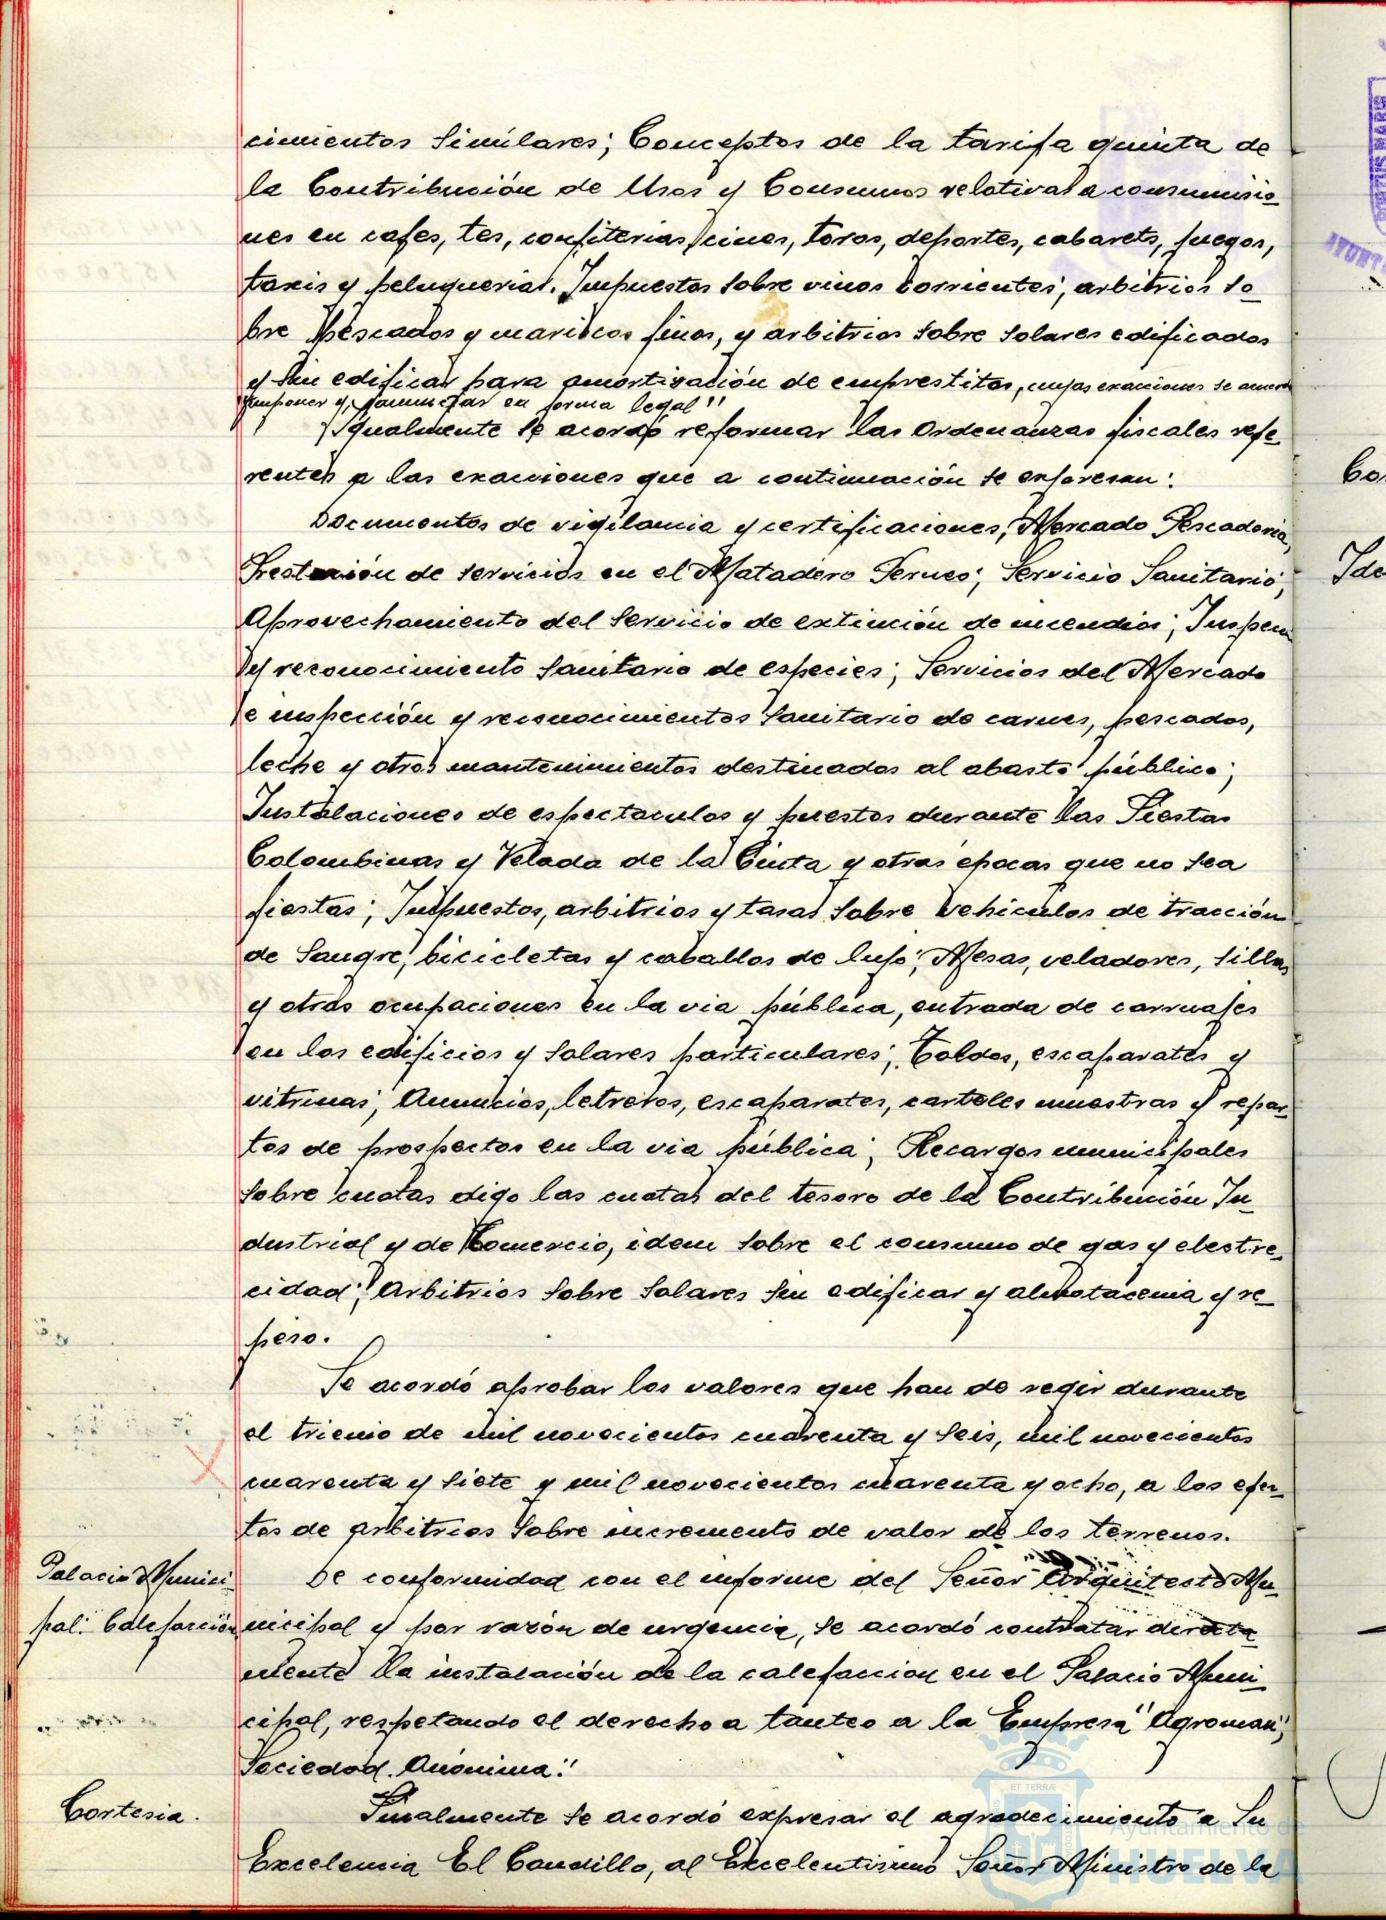 cimientos similares; Conceptos de la tarifa quinta de
la Contribución de Usos y Consumos relativas a consumisio-
nes en cafes, tes, confiterias, cines, toros, deportes, cabarets, juegos,
taxis y peluquerias. Impuestos sobre vinos corrientes; arbitrios so-
bre pescados y mariscos finos, y arbitrios sobre solares edificados
y sin edificar para amortización de emprestitos, cuyas exacciones se
imponer y en forma legal"
Igualmente se acordó reformar las Ordenanzas fiscales refe-
rentes a las exacciones que a continuación se expresan:
Documentos de vigilancia y certificaciones; Mercado Pescaderia,
Prestación de servicios en el Matadero Servicio Sanitario;
Aprovechamiento del servicio de extinción de incendios;
y reconocimiento sanitario de especies; Servicios del Mercado
e inspección y reconocimientos sanitario de carnes, pescados,
leche y otros mantenimientos destinados al abasto público;
Instalaciones de espectaculos y puestos durante las Fiestas
Colombinas y Velada de la Cinta y otras épocas que no sea
fiestas; Impuestos, arbitrios y tasas sobre vehiculos de tracción
de sangre, bicicletas y caballos de lujo; Mesas, veladores, sillas
y otras ocupaciones en la via pública, entrada de carruajes
en los edificios y solares particulares; Toldos, escaparates y
vitrinas; Anuncios, letreros, escaparates, carteles muestras y repar-
tos de prospectos en la via pública; Recargos municipales
sobre cuotas digo las cuotas del tesoro de la Contribución In-
dustrial y de Comercio, idem sobre el consumo de gas y electre-
cidad; Arbitrios sobre solares sin edificar y almotacenia y re-
peso.
Se acordó aprobar los valores que han de regir durante
el trienio de mil novecientos cuarenta y seis, mil novecientos
cuarenta y siete y mil novecientos cuarenta y ocho, a los efec-
tos de arbitrios sobre incremento de valor de los terrenos.
Palacio Munici-
pal: Calefacción
De conformidad con el informe del Señor Arquitecto Mu-
nicipal y por razón de urgencia, se acordó contratar directa-
mente la instalación de la calefaccion en el Palacio Muni-
cipal, respetando el derecho a tanteo a la Empresa "Agroman",
Sociedad Anónima."
Cortesia.
Finalmente se acordó expresar el agradecimiento a Su
Excelencia El Caudillo, al Excelentisimo Señor Ministro de la
ET TERRÆ
Ayuntamiento de
HUELVA